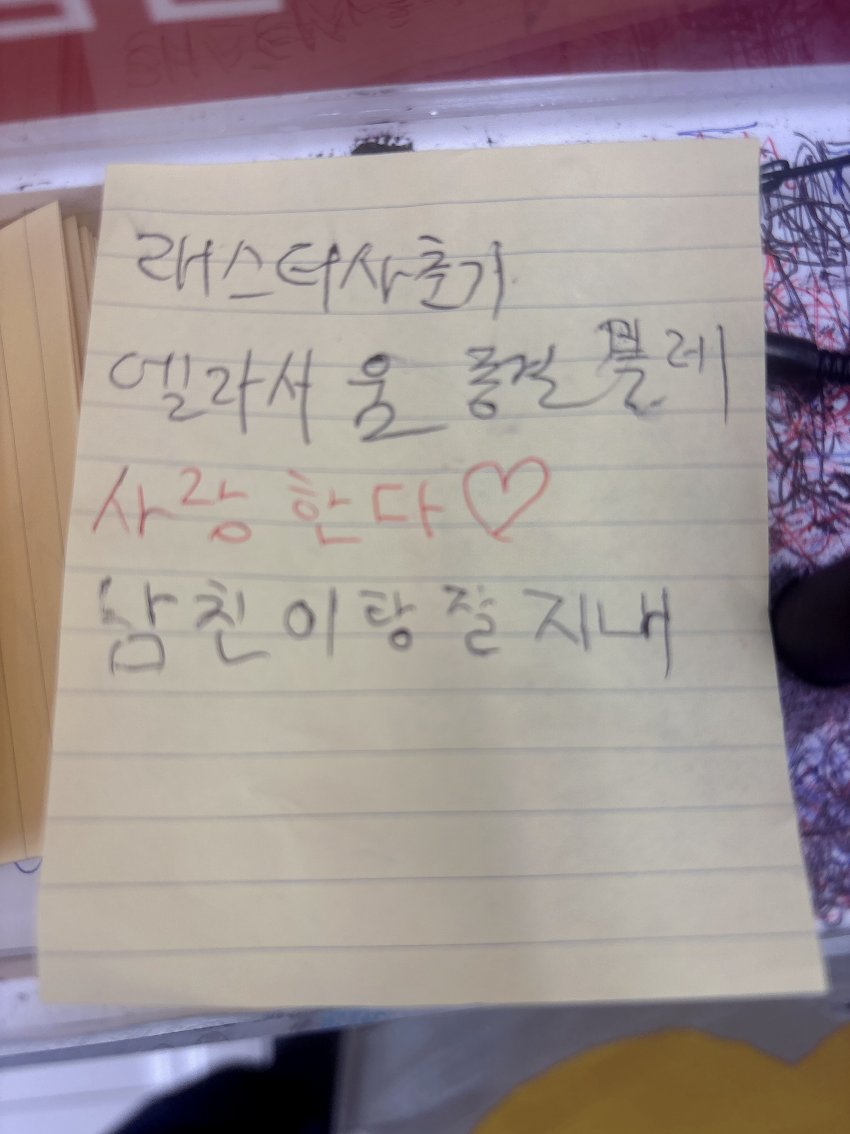 래스터사춘기
엘라서 울 흥결 블레
사랑한다♡
남친이랑 잘 지내